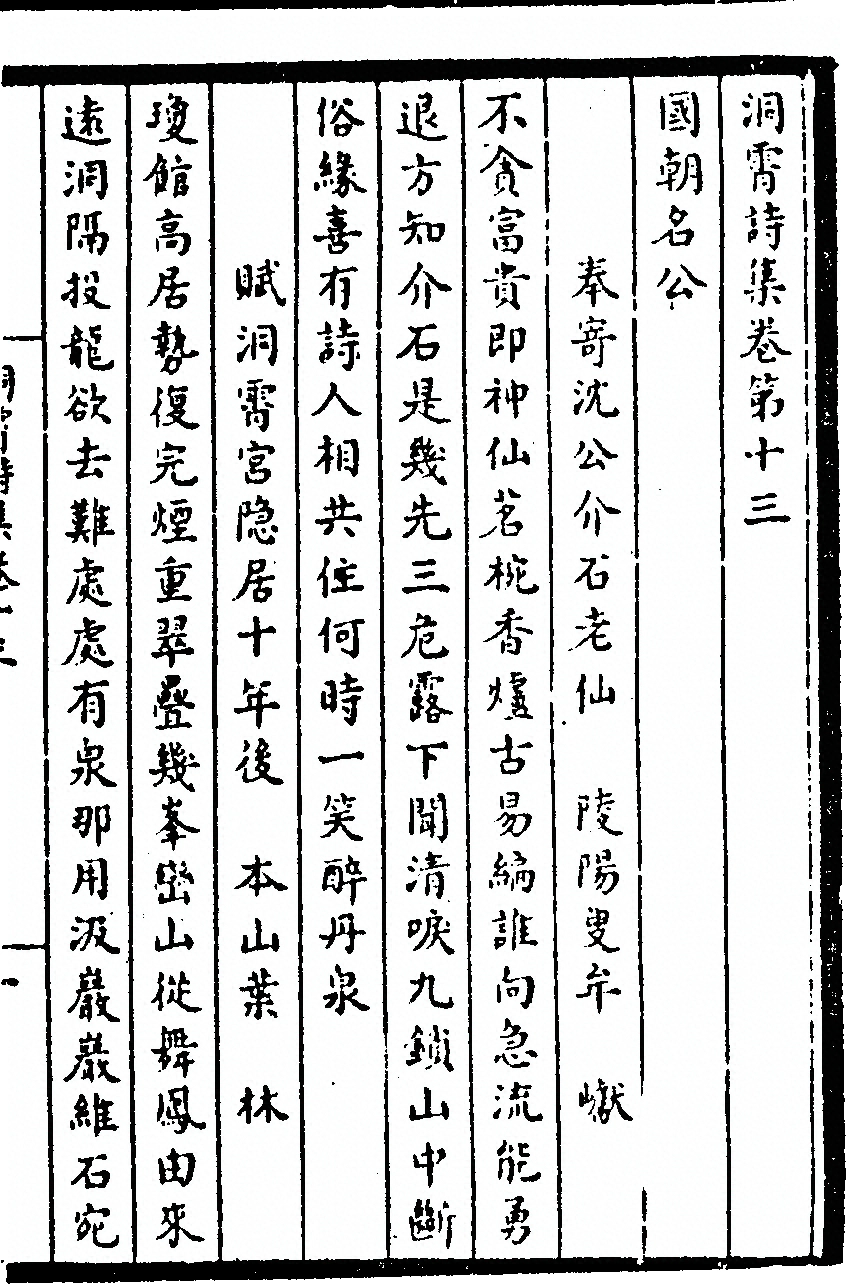 洞霄詩集卷第十三
國朝名公
奉寄沈公介石老仙　陵陽叟牟　巘
不貪富貴即神仙茗椀香爐古易編誰向急流能勇
退方知介石是幾先三危露下聞清唳九鎖山中斷
俗緣喜有詩人相共住何時一笑醉丹泉
賦洞霄宮隐居十年後　本山葉　林
瓊館高居勢復完煙重翠疊幾峯巒山從舞鳳由來
遠洞隔投龍欲去難處處有泉那用汲巖巖維石宛
洞霄詩集卷十三
一